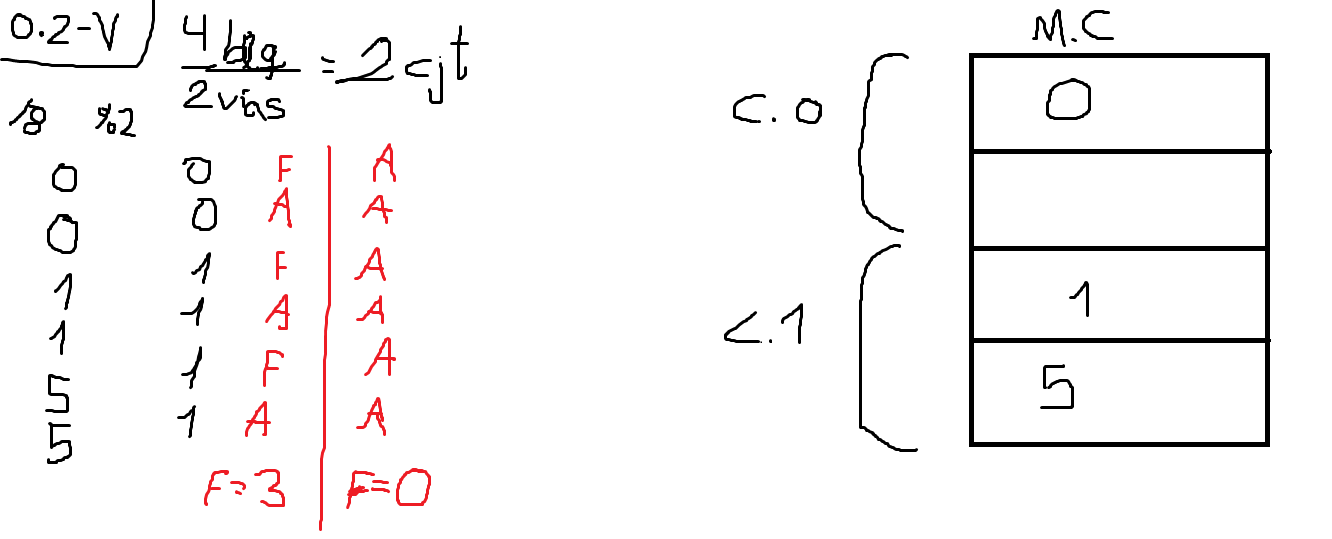 0.2-V
4 blq = 2 cjt
2 vias
/8 %2
0 0 F A
0 0 A A
1 1 F A
1 1 A A
5 1 F A
5 1 A A
F=3 F=0
M.C
C.0 0
C.1 1
5